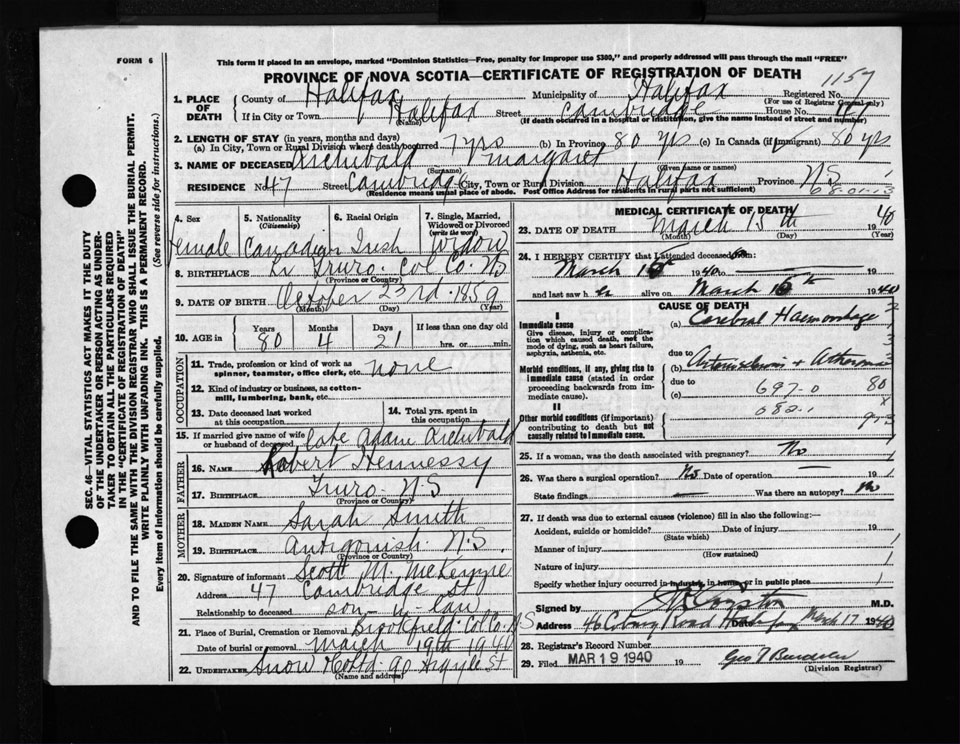 FORM 6
This form to be enclosed in an envelope, marked "Dominion Statistics—Free, penalty for improper use $300," and properly addressed will pass through the mail "FREE"
PROVINCE OF NOVA SCOTIA—CERTIFICATE OF REGISTRATION OF DEATH
1157
1. PLACE OF DEATH
County of Halifax Municipality of Halifax Registered No.
(For use of Registrar General only)
If in City or Town Halifax Street Cambridge House No. 47
(Name) (If death occurred in a hospital or institution, give the name instead of street and number)
2. LENGTH OF STAY (in years, months and days)
(a) In City, Town or Rural Division where death occurred 7 yrs (b) In Province 80 yrs (c) In Canada (if immigrant) 80 yrs
3. NAME OF DECEASED Archibald Margaret
(Surname) (Given name or names)
RESIDENCE No. 47 Street Cambridge City, Town or Rural Division Halifax Province NS
(Residence means usual place of abode. Post Office Address for residents in rural parts not sufficient)
4. Sex
Female
5. Nationality (Citizenship)
Canadian
6. Racial Origin
Irish
7. Single, Married, Widowed or Divorced (write the word)
Widow
8. BIRTHPLACE Nr Truro. Col Co. NS
(Province or Country)
9. DATE OF BIRTH October 23rd. 1859
(Month) (Day) (Year)
10. AGE in
Years 80
Months 4
Days 21
If less than one day old
hrs. or min.
OCCUPATION
11. Trade, profession or kind of work as spinner, teamster, office clerk, etc. none
12. Kind of industry or business, as cotton-mill, lumbering, bank, etc.
13. Date deceased last worked at this occupation
14. Total yrs. spent in this occupation
15. If married give name of wife or husband of deceased late Adam Archibald
FATHER
16. NAME Robert Hennessy
17. BIRTHPLACE Truro N.S
(Province or Country)
MOTHER
18. MAIDEN NAME Sarah Smith
19. BIRTHPLACE Antigonish. N.S.
(Province or Country)
20. Signature of informant Scott M. McKenzie
Address 47 Cambridge St
Relationship to deceased son-in-law
21. Place of Burial, Cremation or Removal Brookfield. Col. Co. NS
Date of burial or removal March 19th 1940
22. UNDERTAKER Snow & Co Ltd 90 Argyle St
(Name and address)
MEDICAL CERTIFICATE OF DEATH
23. DATE OF DEATH March 15th 1940
(Month) (Day) (Year)
24. I HEREBY CERTIFY that I attended deceased from
March 15th 1940 to 19
and last saw her alive on March 15th 1940
CAUSE OF DEATH
I
Immediate cause
Give disease, injury or complication which caused death, not the mode of dying, such as heart failure, asphyxia, asthenia, etc.
(a) Cerebral Haemorrhage
due to
Morbid conditions, if any, giving rise to immediate cause (stated in order proceeding backwards from immediate cause).
(b)
due to
(c)
697-0 80
II
Other morbid conditions (if important) contributing to death but not causally related to immediate cause.
25. If a woman, was the death associated with pregnancy? No
26. Was there a surgical operation? No Date of operation 19
State findings — Was there an autopsy? No
27. If death was due to external causes (violence) fill in also the following:—
Accident, suicide or homicide? Date of injury 19
(State which)
Manner of injury
(How sustained)
Nature of injury
Specify whether injury occurred in industry, in home, or in public place
Signed by M.D.
Address 46 Coburg Road Halifax Date March 17 1940
28. Registrar's Record Number
29. Filed MAR 19 1940 19
(Division Registrar)
SEC. 46—VITAL STATISTICS ACT MAKES IT THE DUTY OF THE UNDERTAKER OR PERSON ACTING AS UNDERTAKER TO OBTAIN ALL THE PARTICULARS REQUIRED IN THE "CERTIFICATE OF REGISTRATION OF DEATH"
AND TO FILE THE SAME WITH THE DIVISION REGISTRAR WHO SHALL ISSUE THE BURIAL PERMIT.
WRITE PLAINLY WITH UNFADING INK. THIS IS A PERMANENT RECORD.
Every item of information should be carefully supplied. (See reverse side for instructions.)